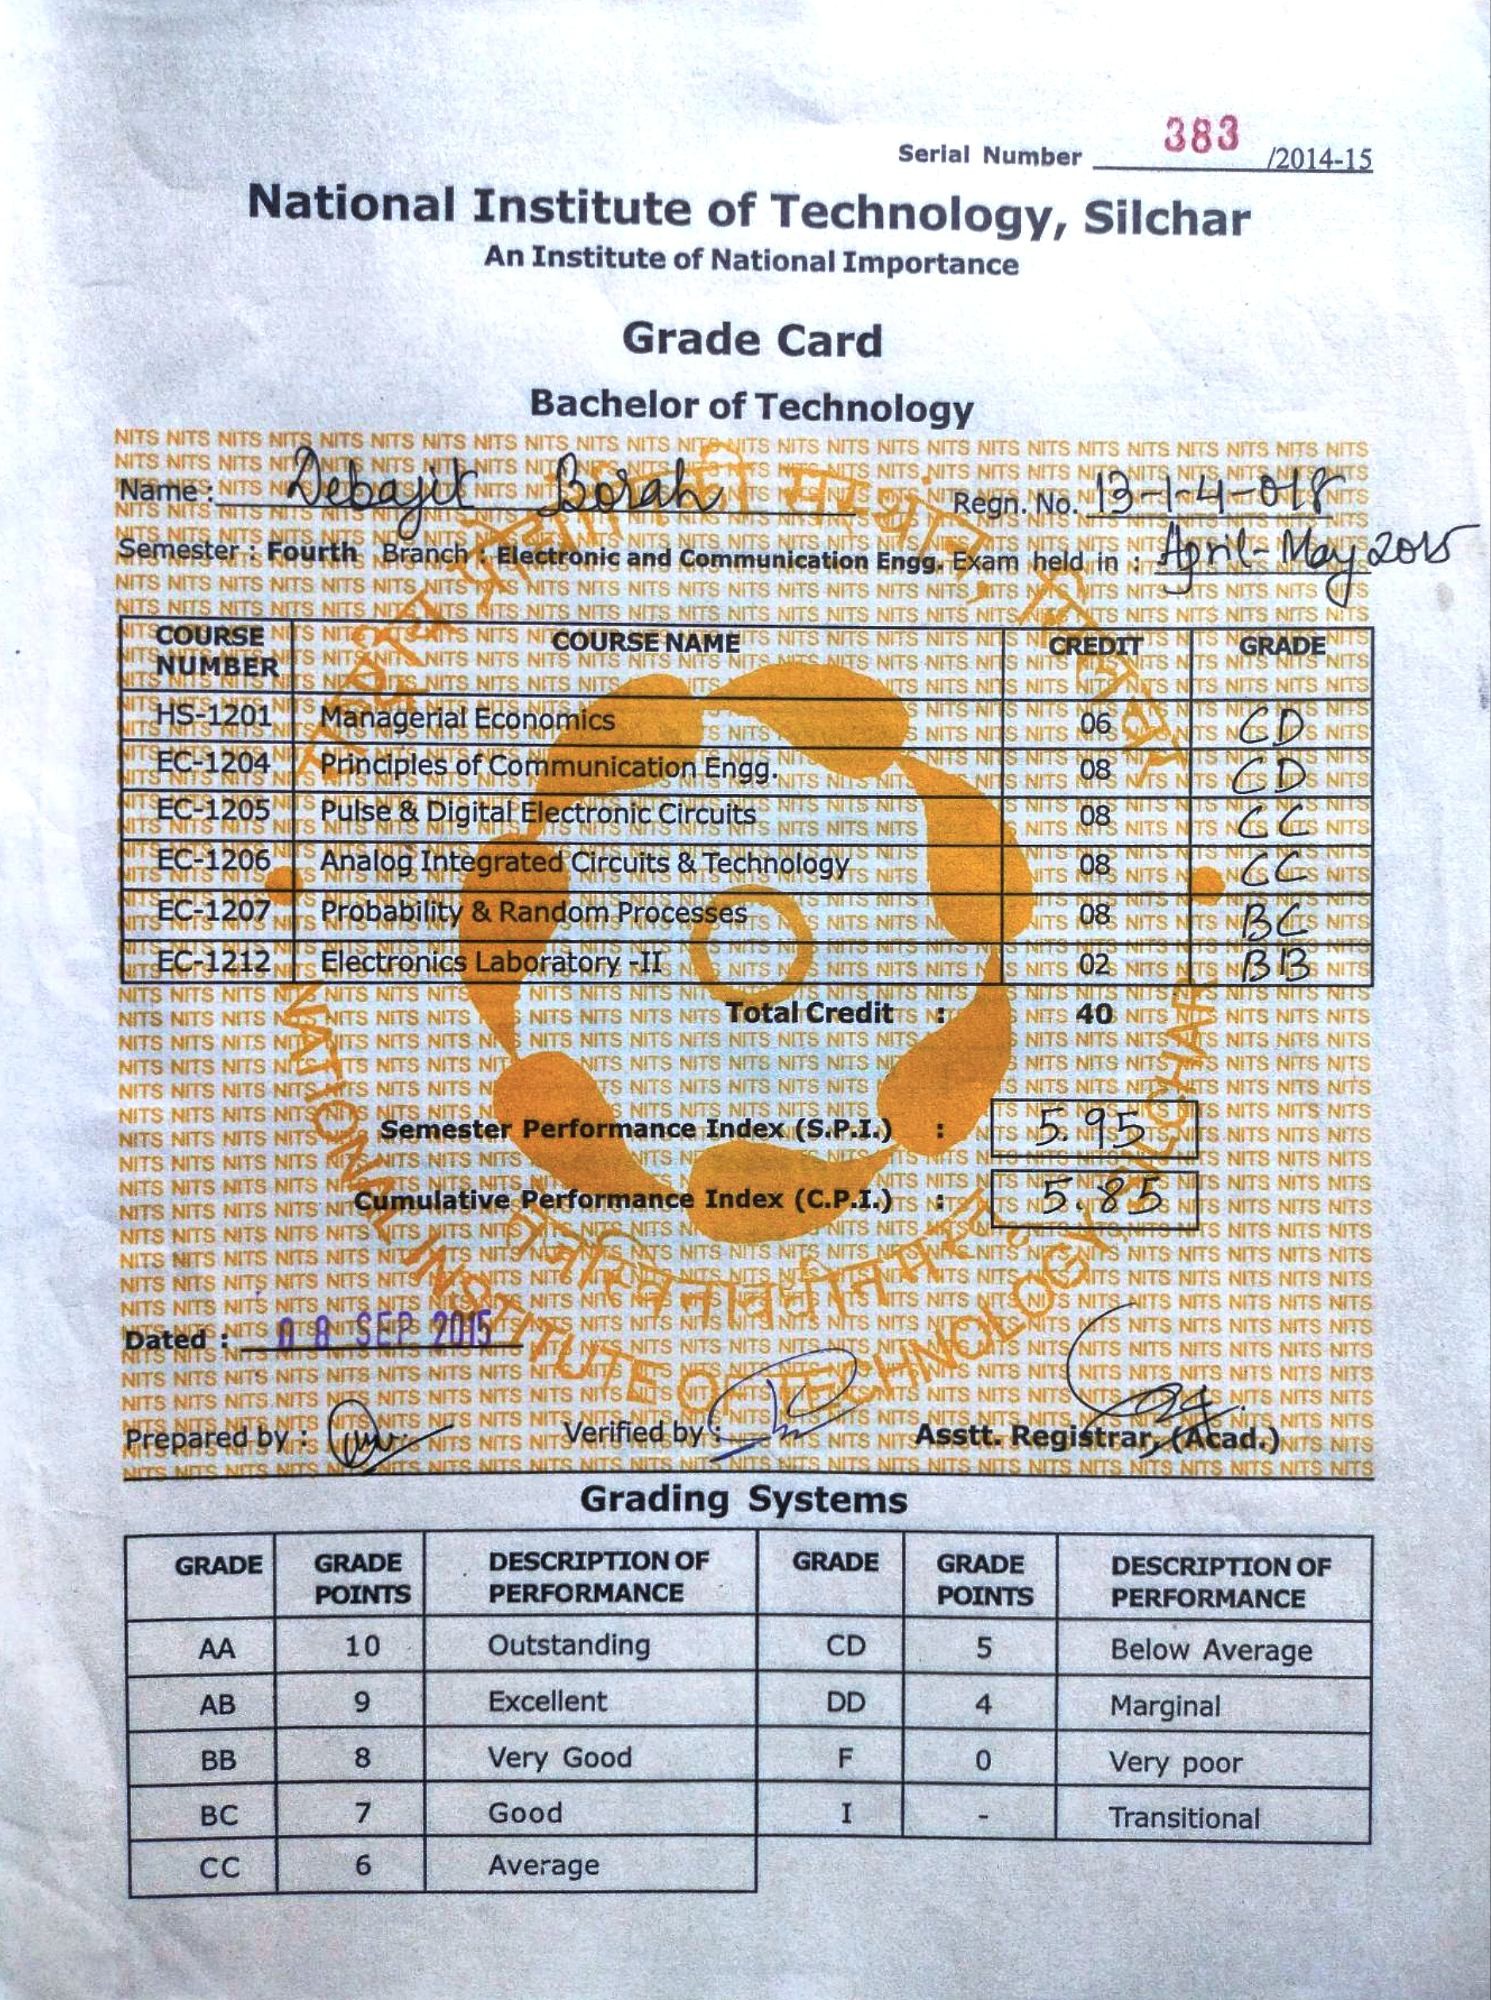 Serial Number 383 /2014-15
National Institute of Technology, Silchar
An Institute of National Importance
Grade Card
Bachelor of Technology
Name : Debajit Borah Regn. No. 13-1-4-018
Semester : Fourth Branch : Electronic and Communication Engg. Exam held in : April-May 2015
COURSE NUMBER COURSE NAME CREDIT GRADE
HS-1201 Managerial Economics 06 CD
EC-1204 Principles of Communication Engg. 08 CD
EC-1205 Pulse & Digital Electronic Circuits 08 CC
EC-1206 Analog Integrated Circuits & Technology 08 CC
EC-1207 Probability & Random Processes 08 BC
EC-1212 Electronics Laboratory -II 02 BB
Total Credit : 40
Semester Performance Index (S.P.I.) : 5.95
Cumulative Performance Index (C.P.I.) : 5.85
NATIONAL INSTITUTE OF TECHNOLOGY SILCHAR
Dated : 08 SEP 2015
Prepared by : Verified by : Asstt. Registrar, (Acad.)
Grading Systems
GRADE GRADE POINTS DESCRIPTION OF PERFORMANCE GRADE GRADE POINTS DESCRIPTION OF PERFORMANCE
AA 10 Outstanding CD 5 Below Average
AB 9 Excellent DD 4 Marginal
BB 8 Very Good F 0 Very poor
BC 7 Good I - Transitional
CC 6 Average